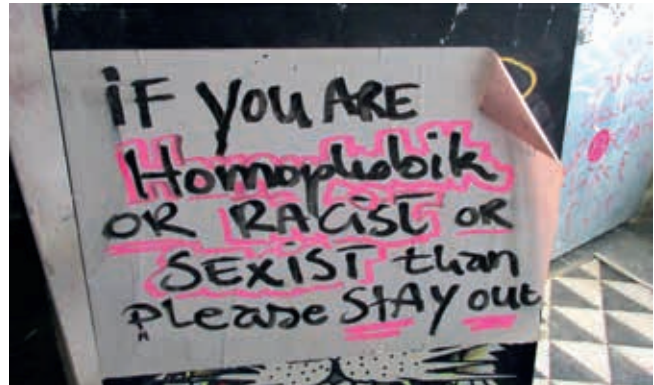 iF YOU ARE
Homophobik
OR RACiST OR
SEXiST than
PLease StAY out